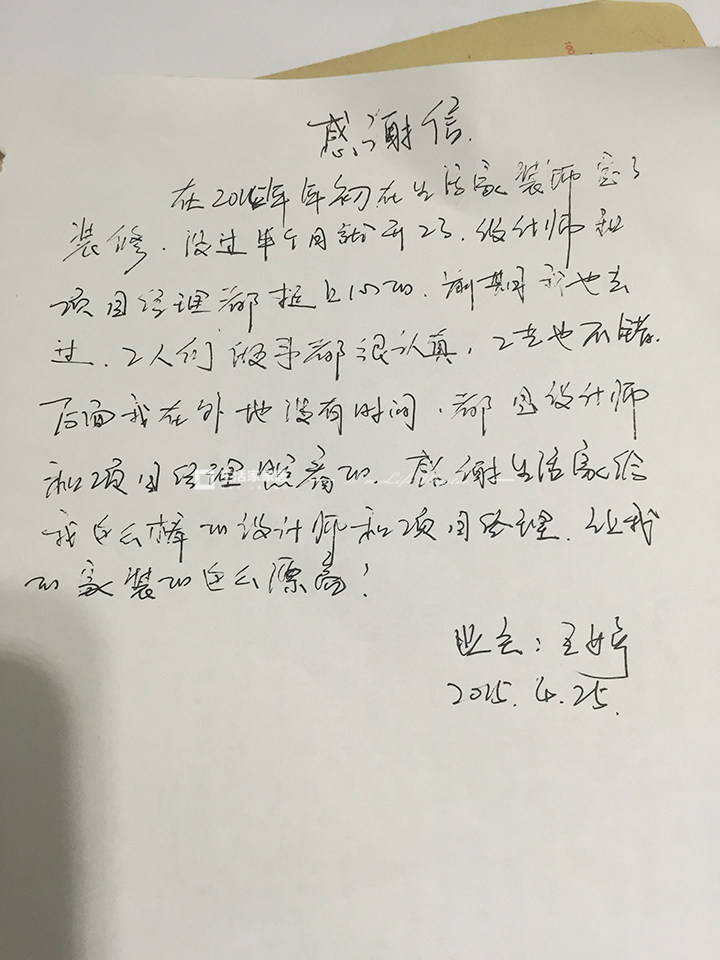 感谢信.
在2015年年初在生活家装饰定了
装修.没过半个月就开工了.设计师和
项目经理都挺上心的.前期我也去
过.工人们做事都很认真,工艺也不错.
后面我在外地没有时间.都是设计师
和项目经理照看的.感谢生活家给
我这么棒的设计师和项目经理.让我
的家装的这么漂亮!
业主:王婷
2015.4.25.